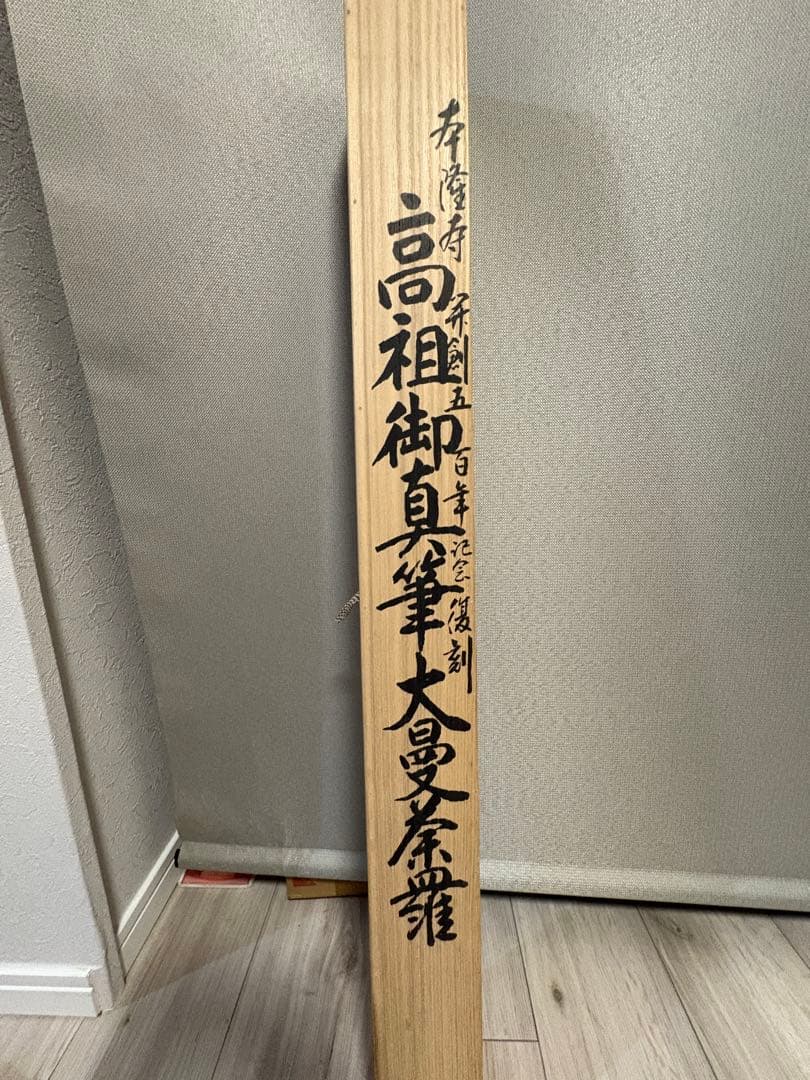 本隆寺 開創五百年記念復刻
高祖御真筆大曼荼羅